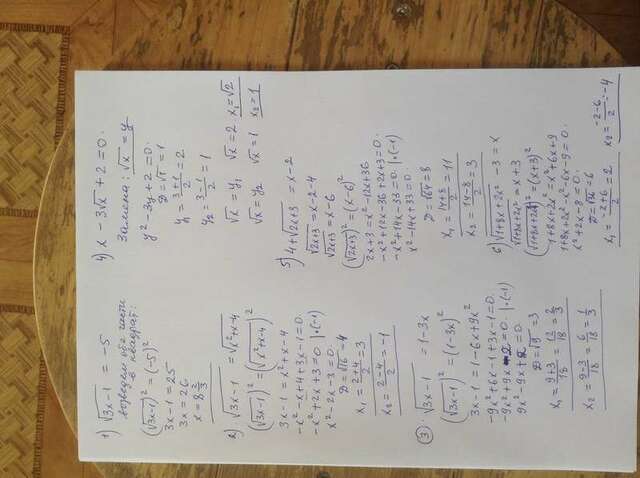 1) √3x-1 = -5
возведем обе части
в квадрат:
(√3x-1)² = (-5)²
3x-1 = 25
3x = 26
x = 8 2/3
2) √3x-1 = √x²+x-4
(√3x-1)² = (√x²+x-4)²
3x-1 = x²+x-4
-x²-x+4+3x-1=0.
-x²+2x+3=0 |·(-1)
x²-2x-3=0.
D=√16=4
x₁ = 2+4/2 = 3
x₂ = 2-4/2 = -1
3) √3x-1 = 1-3x
(√3x-1)² = (1-3x)²
3x-1 = 1-6x+9x²
-9x²+6x-1+3x-1=0.
-9x²+9x-2=0. |·(-1)
9x²-9x+2=0.
D=√9=3
x₁ = 9+3/18 = 12/18 = 2/3
x₂ = 9-3/18 = 6/18 = 1/3
4) x-3√x+2=0.
Замена: √x = y
y²-3y+2=0.
D=√1=1
y₁ = 3+1/2 = 2
y₂ = 3-1/2 = 1
√x = y₁ √x = 2 x₁=√2
√x = y₂ √x = 1 x₂=1
5) 4+√2x+3 = x-2
√2x+3 = x-2-4
√2x+3 = x-6
(√2x+3)² = (x-6)²
2x+3 = x²-12x+36
-x²+12x-36+2x+3=0.
-x²+14x-33=0. |·(-1)
x²-14x+33=0.
D=√64=8
x₁ = 14+8/2 = 11
x₂ = 14-8/2 = 3
6) √1+8x+2x² -3 = x
√1+8x+2x² = x+3
(√1+8x+2x²)² = (x+3)²
1+8x+2x² = x²+6x+9
1+8x+2x²-x²-6x-9=0.
x²+2x-8=0.
D=√36=6
x₁ = -2+6/2 = 2 x₂ = -2-6/2 = -4